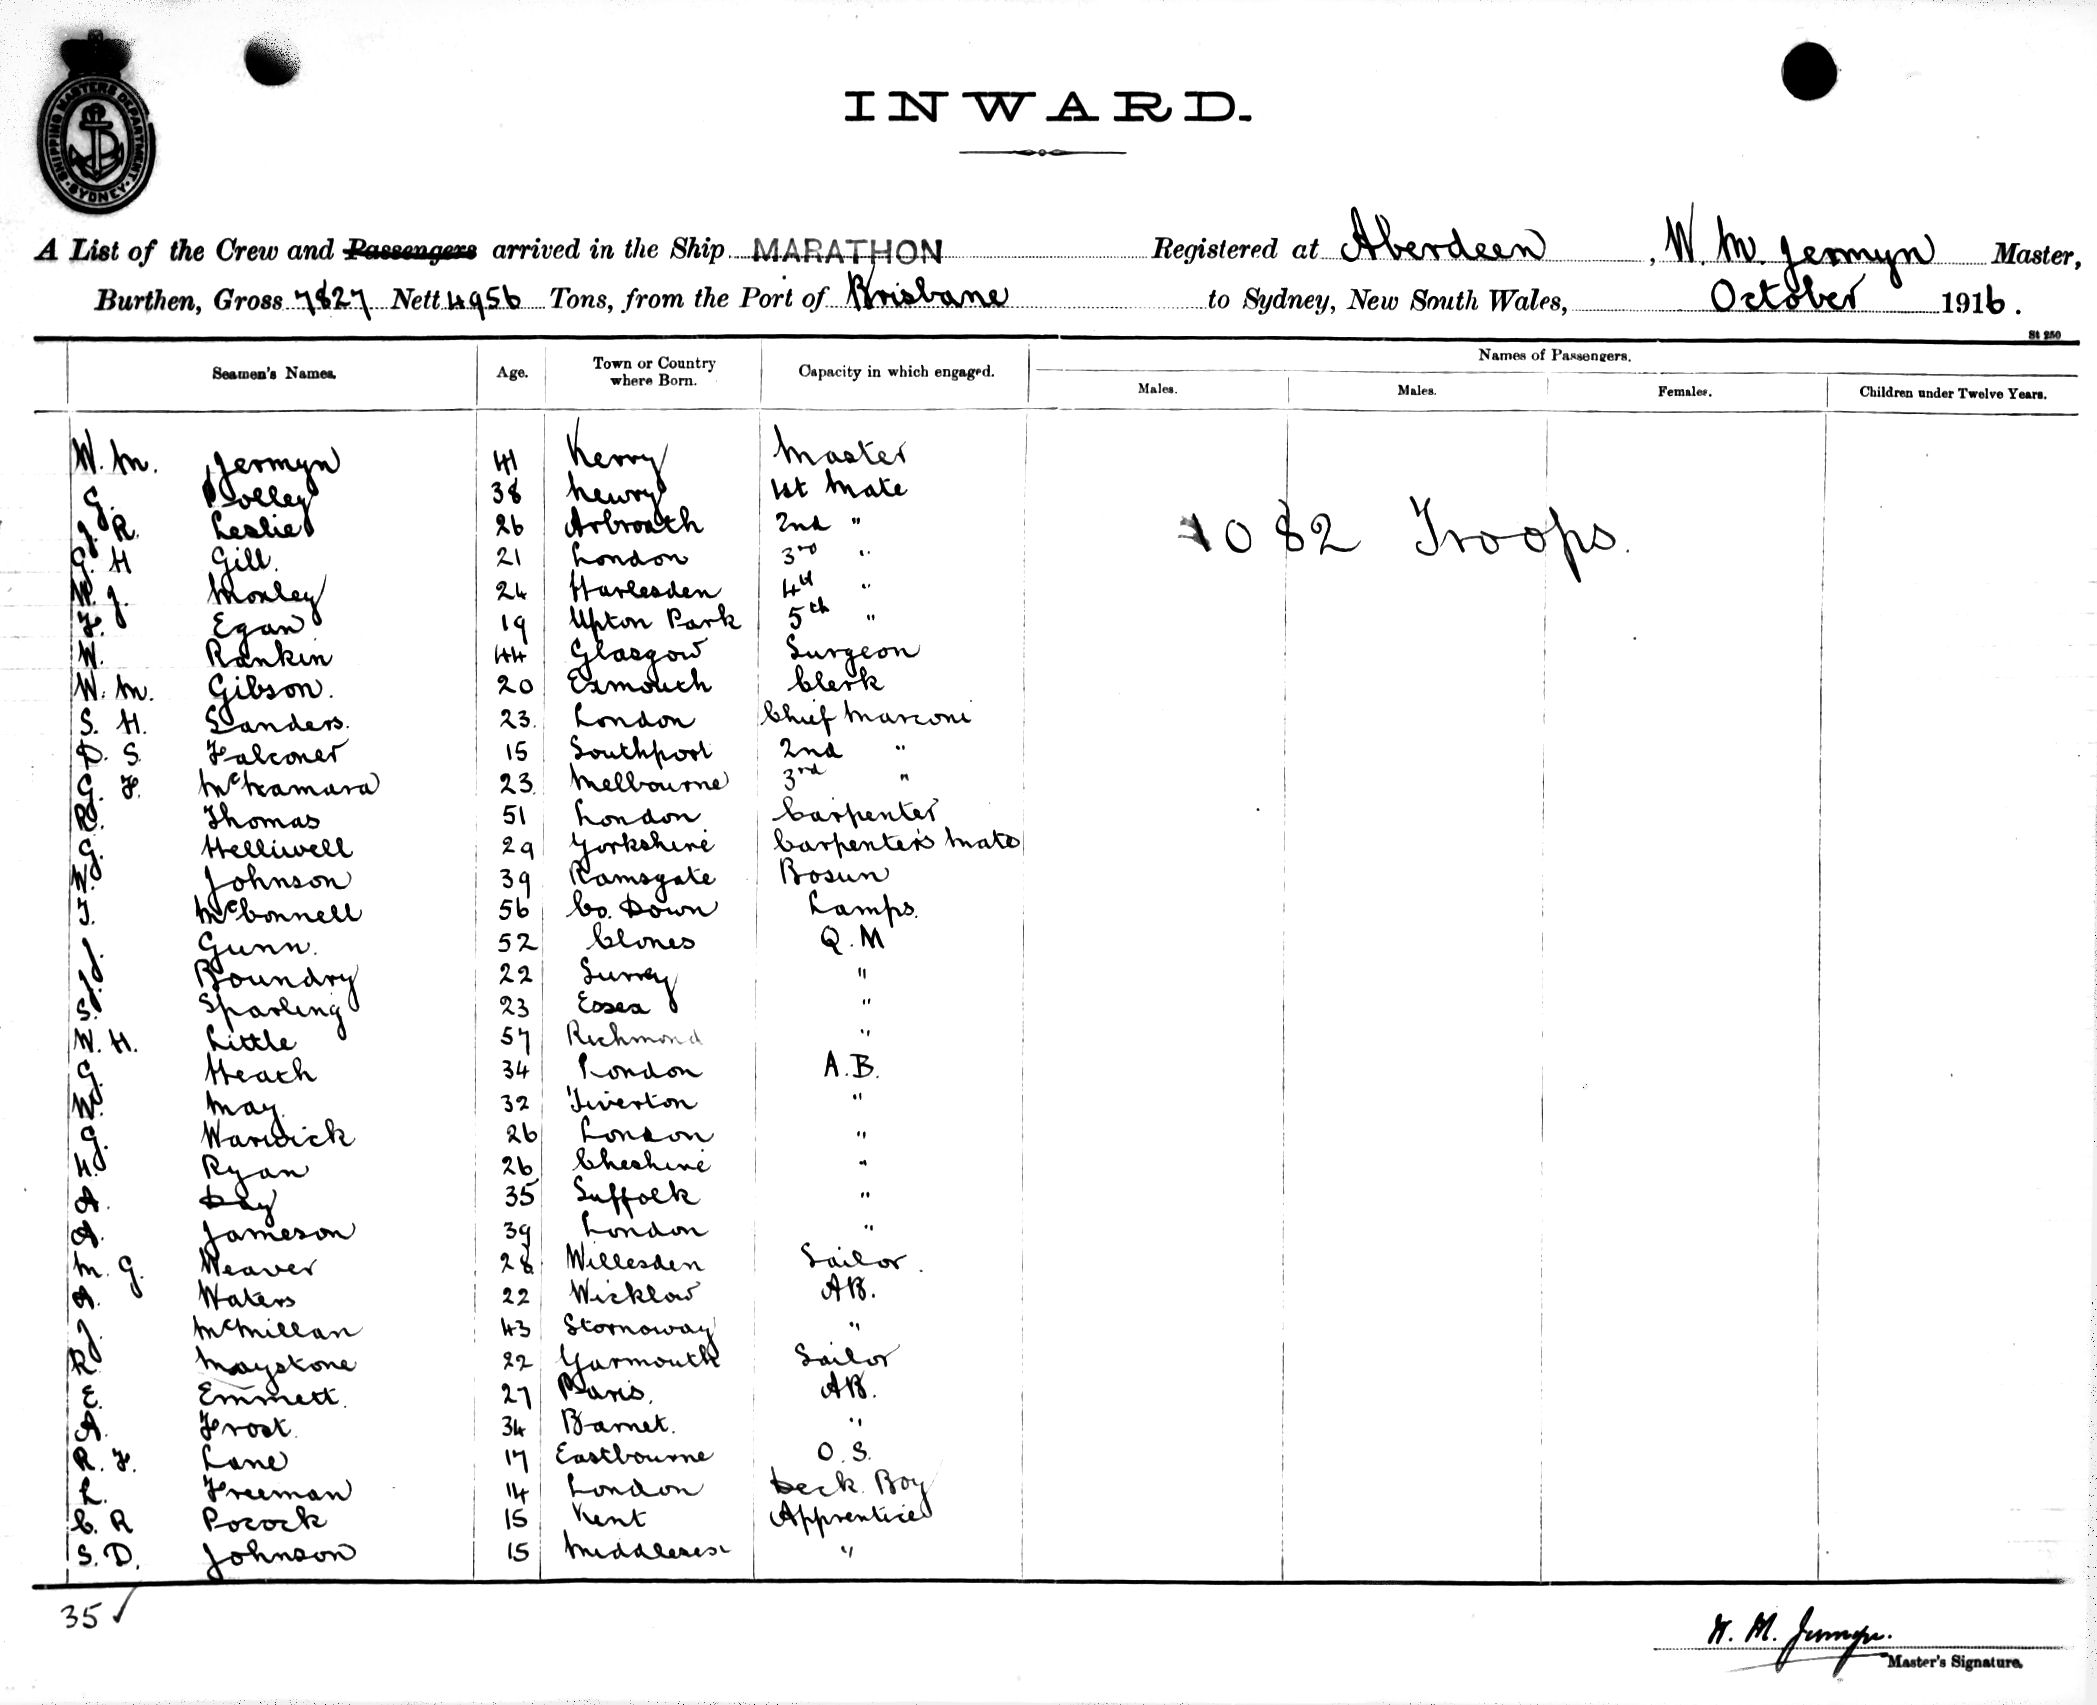 SHIPPING MASTERS DEPARTMENT
SYDNEY
INWARD.
A List of the Crew and Passengers arrived in the Ship MARATHON Registered at Aberdeen, W. M. Jermyn Master,
Burthen, Gross 7827 Nett 4956 Tons, from the Port of Brisbane to Sydney, New South Wales, October 1916.
St 250
Seamen's Names. Age. Town or Country where Born. Capacity in which engaged. Names of Passengers.
Males. Males. Females. Children under Twelve Years.
W. M. Jermyn 41 Kerry Master
G. Polley 38 Newry 1st Mate
J. R. Leslie 26 Arbroath 2nd "
G. H Gill. 21 London 3rd "
W. J. Morley 24 Harlesden 4th "
F. Egan 19 Upton Park 5th "
W. Rankin 44 Glasgow Surgeon
W. M. Gibson. 20 Exmouth Clerk
S. H. Sanders. 23. London Chief Marconi
D. S. Falconer 15 Southport 2nd "
G. F. McNamara 23. Melbourne 3rd "
R. Thomas 51 London Carpenter
G. Helliwell 29 Yorkshire Carpenter's Mate
W. Johnson 39 Ramsgate Bosun
J. McConnell 56 Co. Down Lamps.
J. Gunn. 52 Clones Q. M
J. Boundry 22 Surrey "
S. Sparling 23 Essex "
W. H. Little 57 Richmond "
G. Heath 34 London A.B.
W. May. 32 Tiverton "
G. Warwick 26 London "
H. Ryan 26 Cheshire "
A. Day 35 Suffolk "
A. Jameson 39 London "
M. G. Weaver 28 Willesden Sailor.
A. Waters 22 Wicklow AB.
J. McMillan 43 Stornoway "
R. Maystone 22 Yarmouth Sailor
E. Emmett. 27 Paris. AB.
A. Frost. 34 Barnet. "
R. F. Lane 17 Eastbourne O.S.
L. Freeman 14 London Deck Boy
C. R Pocock 15 Kent Apprentice
S. D. Johnson 15 Middlesex "
1082 Troops.
35 ✓
W. M. Jermyn.
Master's Signature.